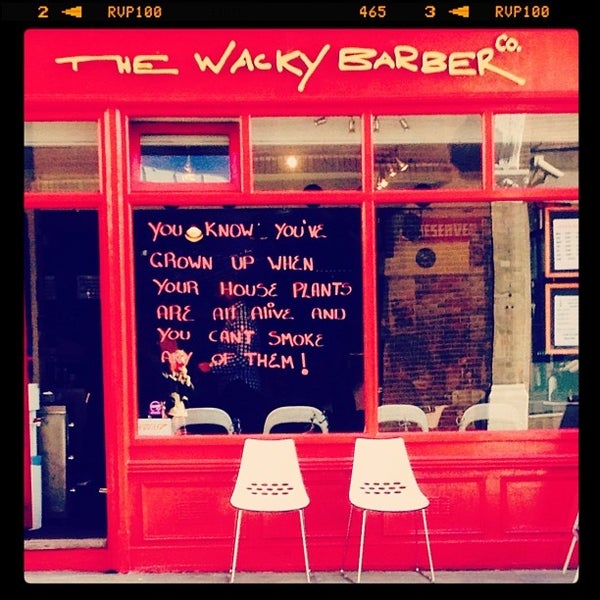 2 RVP100 465 3 RVP100
THE WACKY BARBER Co.
YOU KNOW YOU'VE
GROWN UP WHEN
YOUR HOUSE PLANTS
ARE All Alive AND
YOU CANT SMOKE
ANY OF THEM!
RESERVE